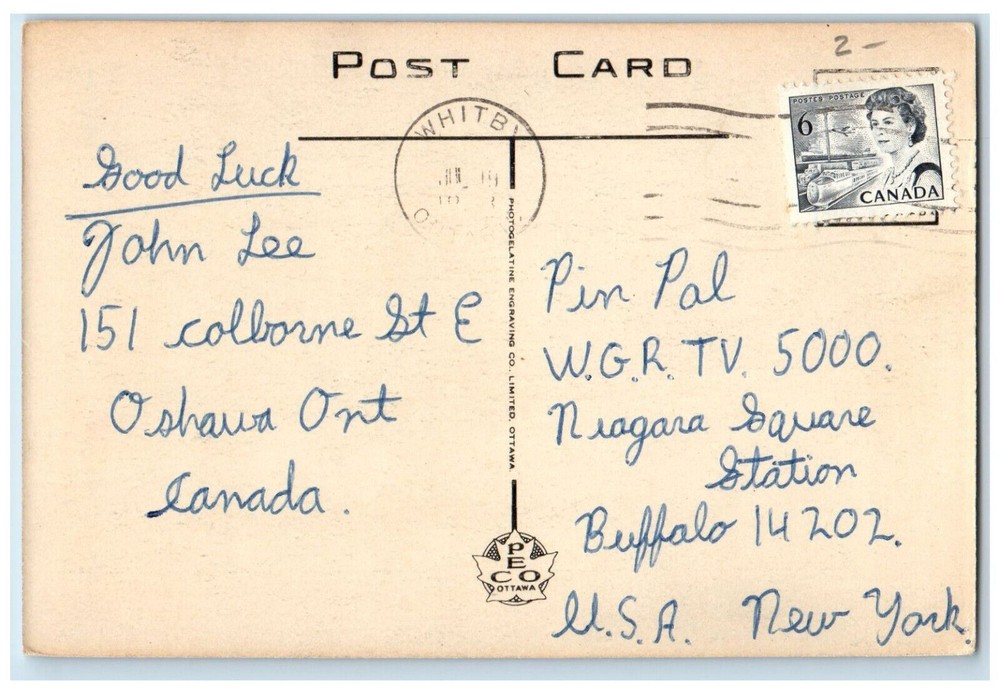 2-
POST CARD
WHITBY
JUL 19
POSTES POSTAGE
6
CANADA
Good Luck
John Lee
151 Colborne St E
Oshawa Ont
Canada.
PHOTOGELATINE ENGRAVING CO., LIMITED, OTTAWA
PECO
OTTAWA
Pin Pal
W.G.R. TV. 5000.
Niagara Square
Station
Buffalo 14202.
U.S.A. New York.